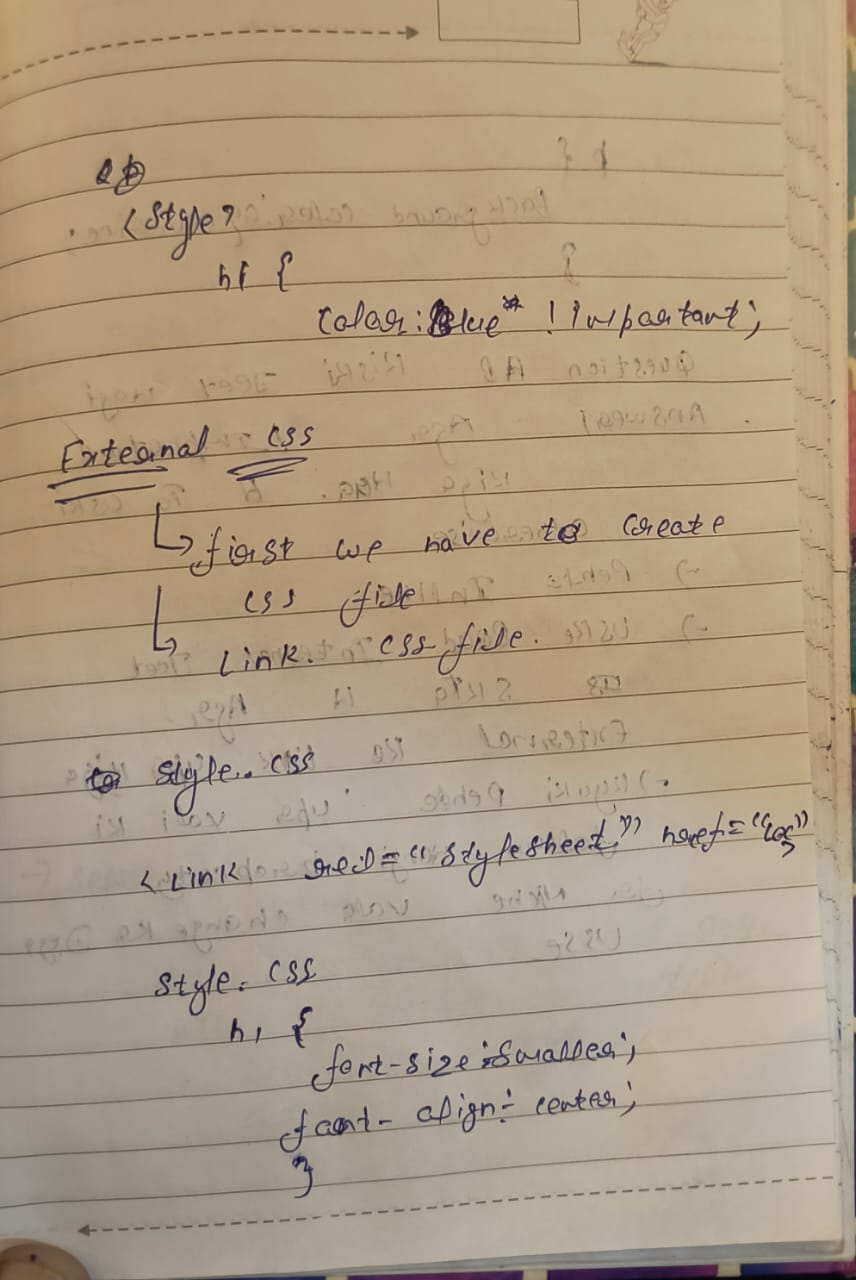 <style>
h1 {
color: Blue !important;
External CSS
first we have to create
css file
Link. css file.
style. css
<Link rel="stylesheet" href="
style. css
h1 {
font-size: smaller;
font-align: center;
}